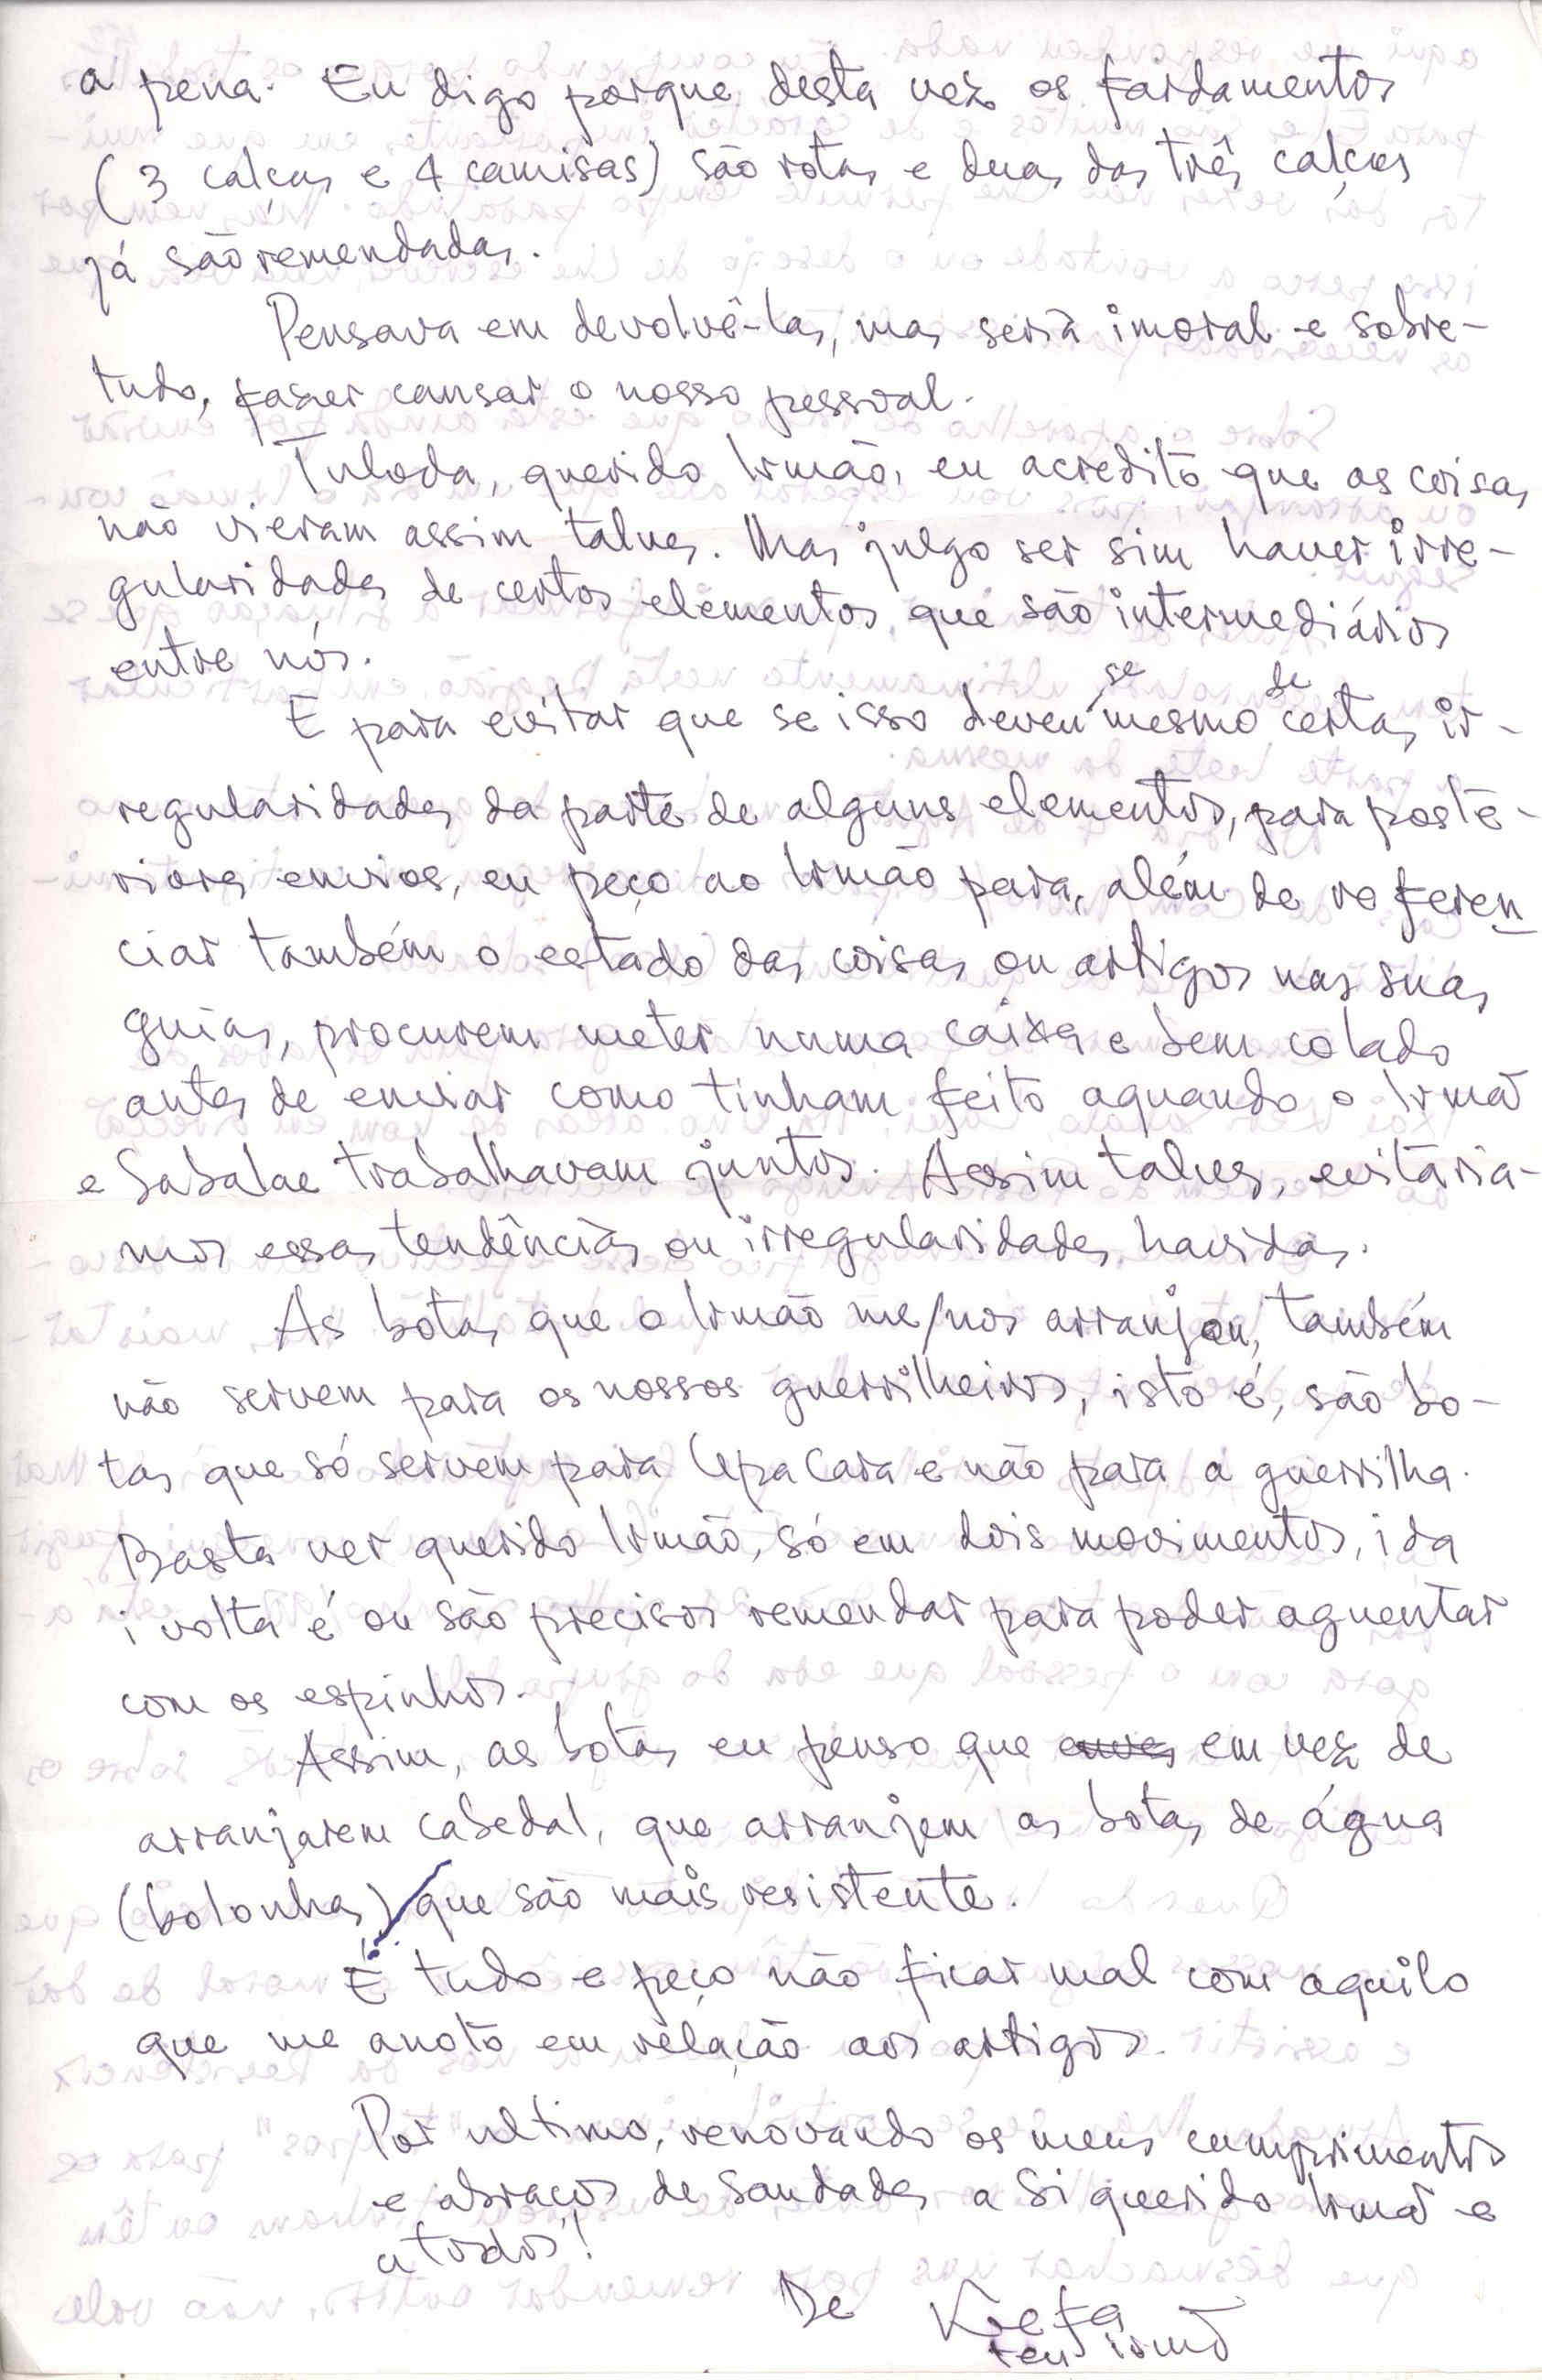 a pena. Eu digo porque desta vez os fardamentos
(3 calças e 4 camisas) são rotas e duas das três calças
já são remendadas.
Pensava em devolvê-las, mas seria imoral e sobre-
tudo, fazer cansar o nosso pessoal.
Tuloda, querido Irmão, eu acredito que as coisas
não vieram assim talvez. Mas julgo ser sim haver irre-
gularidades de certos elementos que são intermediários
entre nós.
E para evitar que se isso deveu se mesmo de certas ir-
regularidades da parte de alguns elementos, para poste-
riores envios, eu peço ao Irmão para, além de referen
ciar também o estado das coisas ou artigos nas suas
guias, procurem meter numa caixa e bem colado
antes de enviar como tinham feito aquando o Irmão
e Sabalae trabalhavam juntos. Assim talvez, evitaria-
mos essas tendências ou irregularidades havidas.
As botas que o Irmão me/nos arranjou, também
não servem para os nossos guerrilheiros, isto é, são bo-
tas que só servem para Upa Cara e não para a guerrilha.
Basta ver querido Irmão, só em dois movimentos, ida
i volta é ou são precisos remendar para poder aguentar
com os espinhos.
Assim, as botas eu penso que em vez de
arranjarem cabedal, que arranjem as botas de água
(bolonhas) que são mais resistente.
É tudo e peço não ficar mal com aquilo
que me anoto em relação aos artigos.
Por ultimo, renovando os meus cumprimentos
e abraços de Saudades a Si querido Irmão e
a todos!
De Kreta
teu irmão